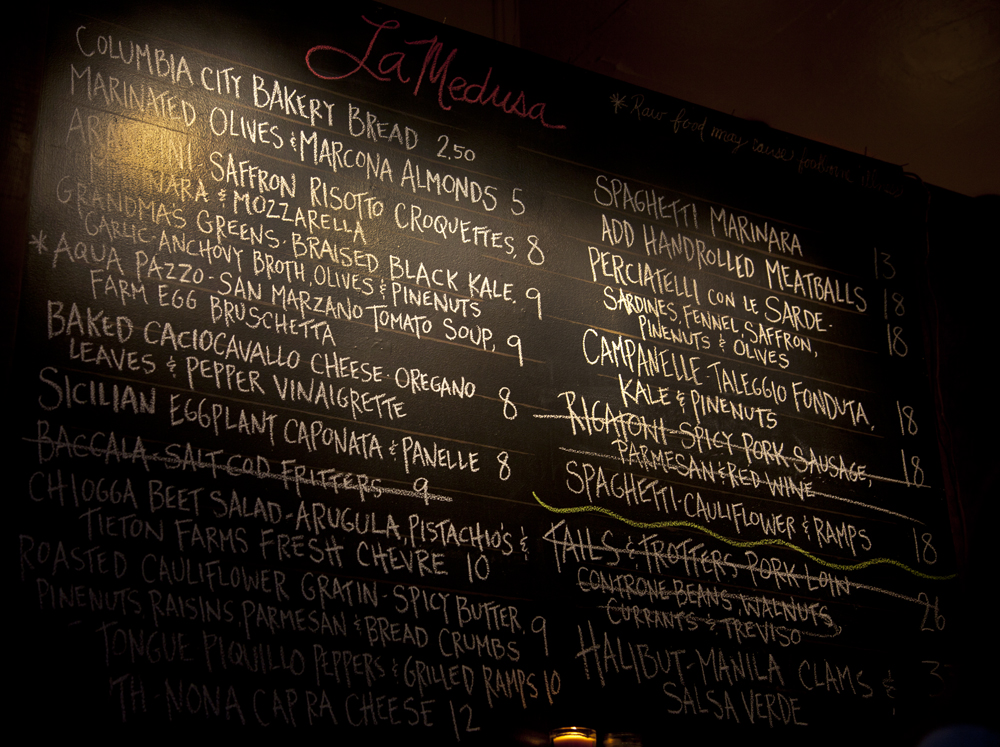 La Medusa
* Raw food may cause foodborne illness
COLUMBIA CITY BAKERY BREAD 2.50
MARINATED OLIVES & MARCONA ALMONDS 5
SAFFRON RISOTTO CROQUETTES, 8
& MOZZARELLA
GRANDMAS GREENS - BRAISED BLACK KALE, 9
GARLIC-ANCHOVY BROTH, OLIVES & PINENUTS
* AQUA PAZZO - SAN MARZANO TOMATO SOUP, 9
FARM EGG BRUSCHETTA
BAKED CACIOCAVALLO CHEESE - OREGANO 8
LEAVES & PEPPER VINAIGRETTE
SICILIAN EGGPLANT CAPONATA & PANELLE 8
BACCALA - SALT COD FRITTERS 9
CHIOGGA BEET SALAD - ARUGULA, PISTACHIO'S &
TIETON FARMS FRESH CHEVRE 10
ROASTED CAULIFLOWER GRATIN - SPICY BUTTER, 9
PINENUTS, RAISINS, PARMESAN & BREAD CRUMBS
TONGUE PIQUILLO PEPPERS & GRILLED RAMPS 10
NONA CAPRA CHEESE 12
SPAGHETTI MARINARA 13
ADD HANDROLLED MEATBALLS 18
PERCIATELLI CON LE SARDE - 18
SARDINES, FENNEL, SAFFRON,
PINENUTS & OLIVES
CAMPANELLE - TALEGGIO FONDUTA, 18
KALE & PINENUTS
RIGATONI - SPICY PORK SAUSAGE, 18
PARMESAN & RED WINE
SPAGHETTI - CAULIFLOWER & RAMPS 18
TAILS & TROTTERS PORK LOIN 26
CONTRONE BEANS, WALNUTS,
CURRANTS & TREVISO
HALIBUT - MANILA CLAMS &
SALSA VERDE